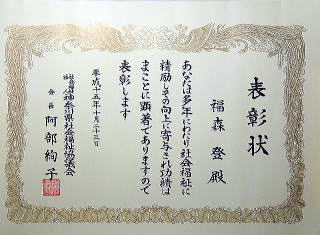 表彰状
福森 登 殿
あなたは多年にわたり社会福祉に
精励しその向上に寄与され功績は
まことに顕著でありますので
表彰します
平成十五年十月二十三日
社会福祉法人 神奈川県社会福祉協議会
会長 阿部絢子